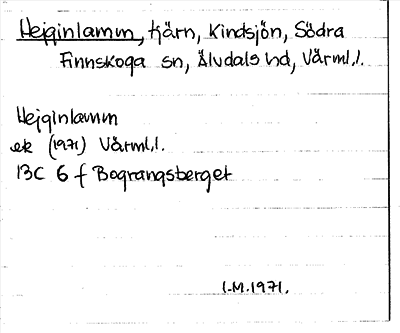 Hejqinlamm, tjärn, Kindsjön, Södra
Finnskoga sn, Älvdals hd, Värml.l.
Hejqinlamm
ek (1971) Värml.l.
13C 6 f Bograngsberget
I.M. 1971.